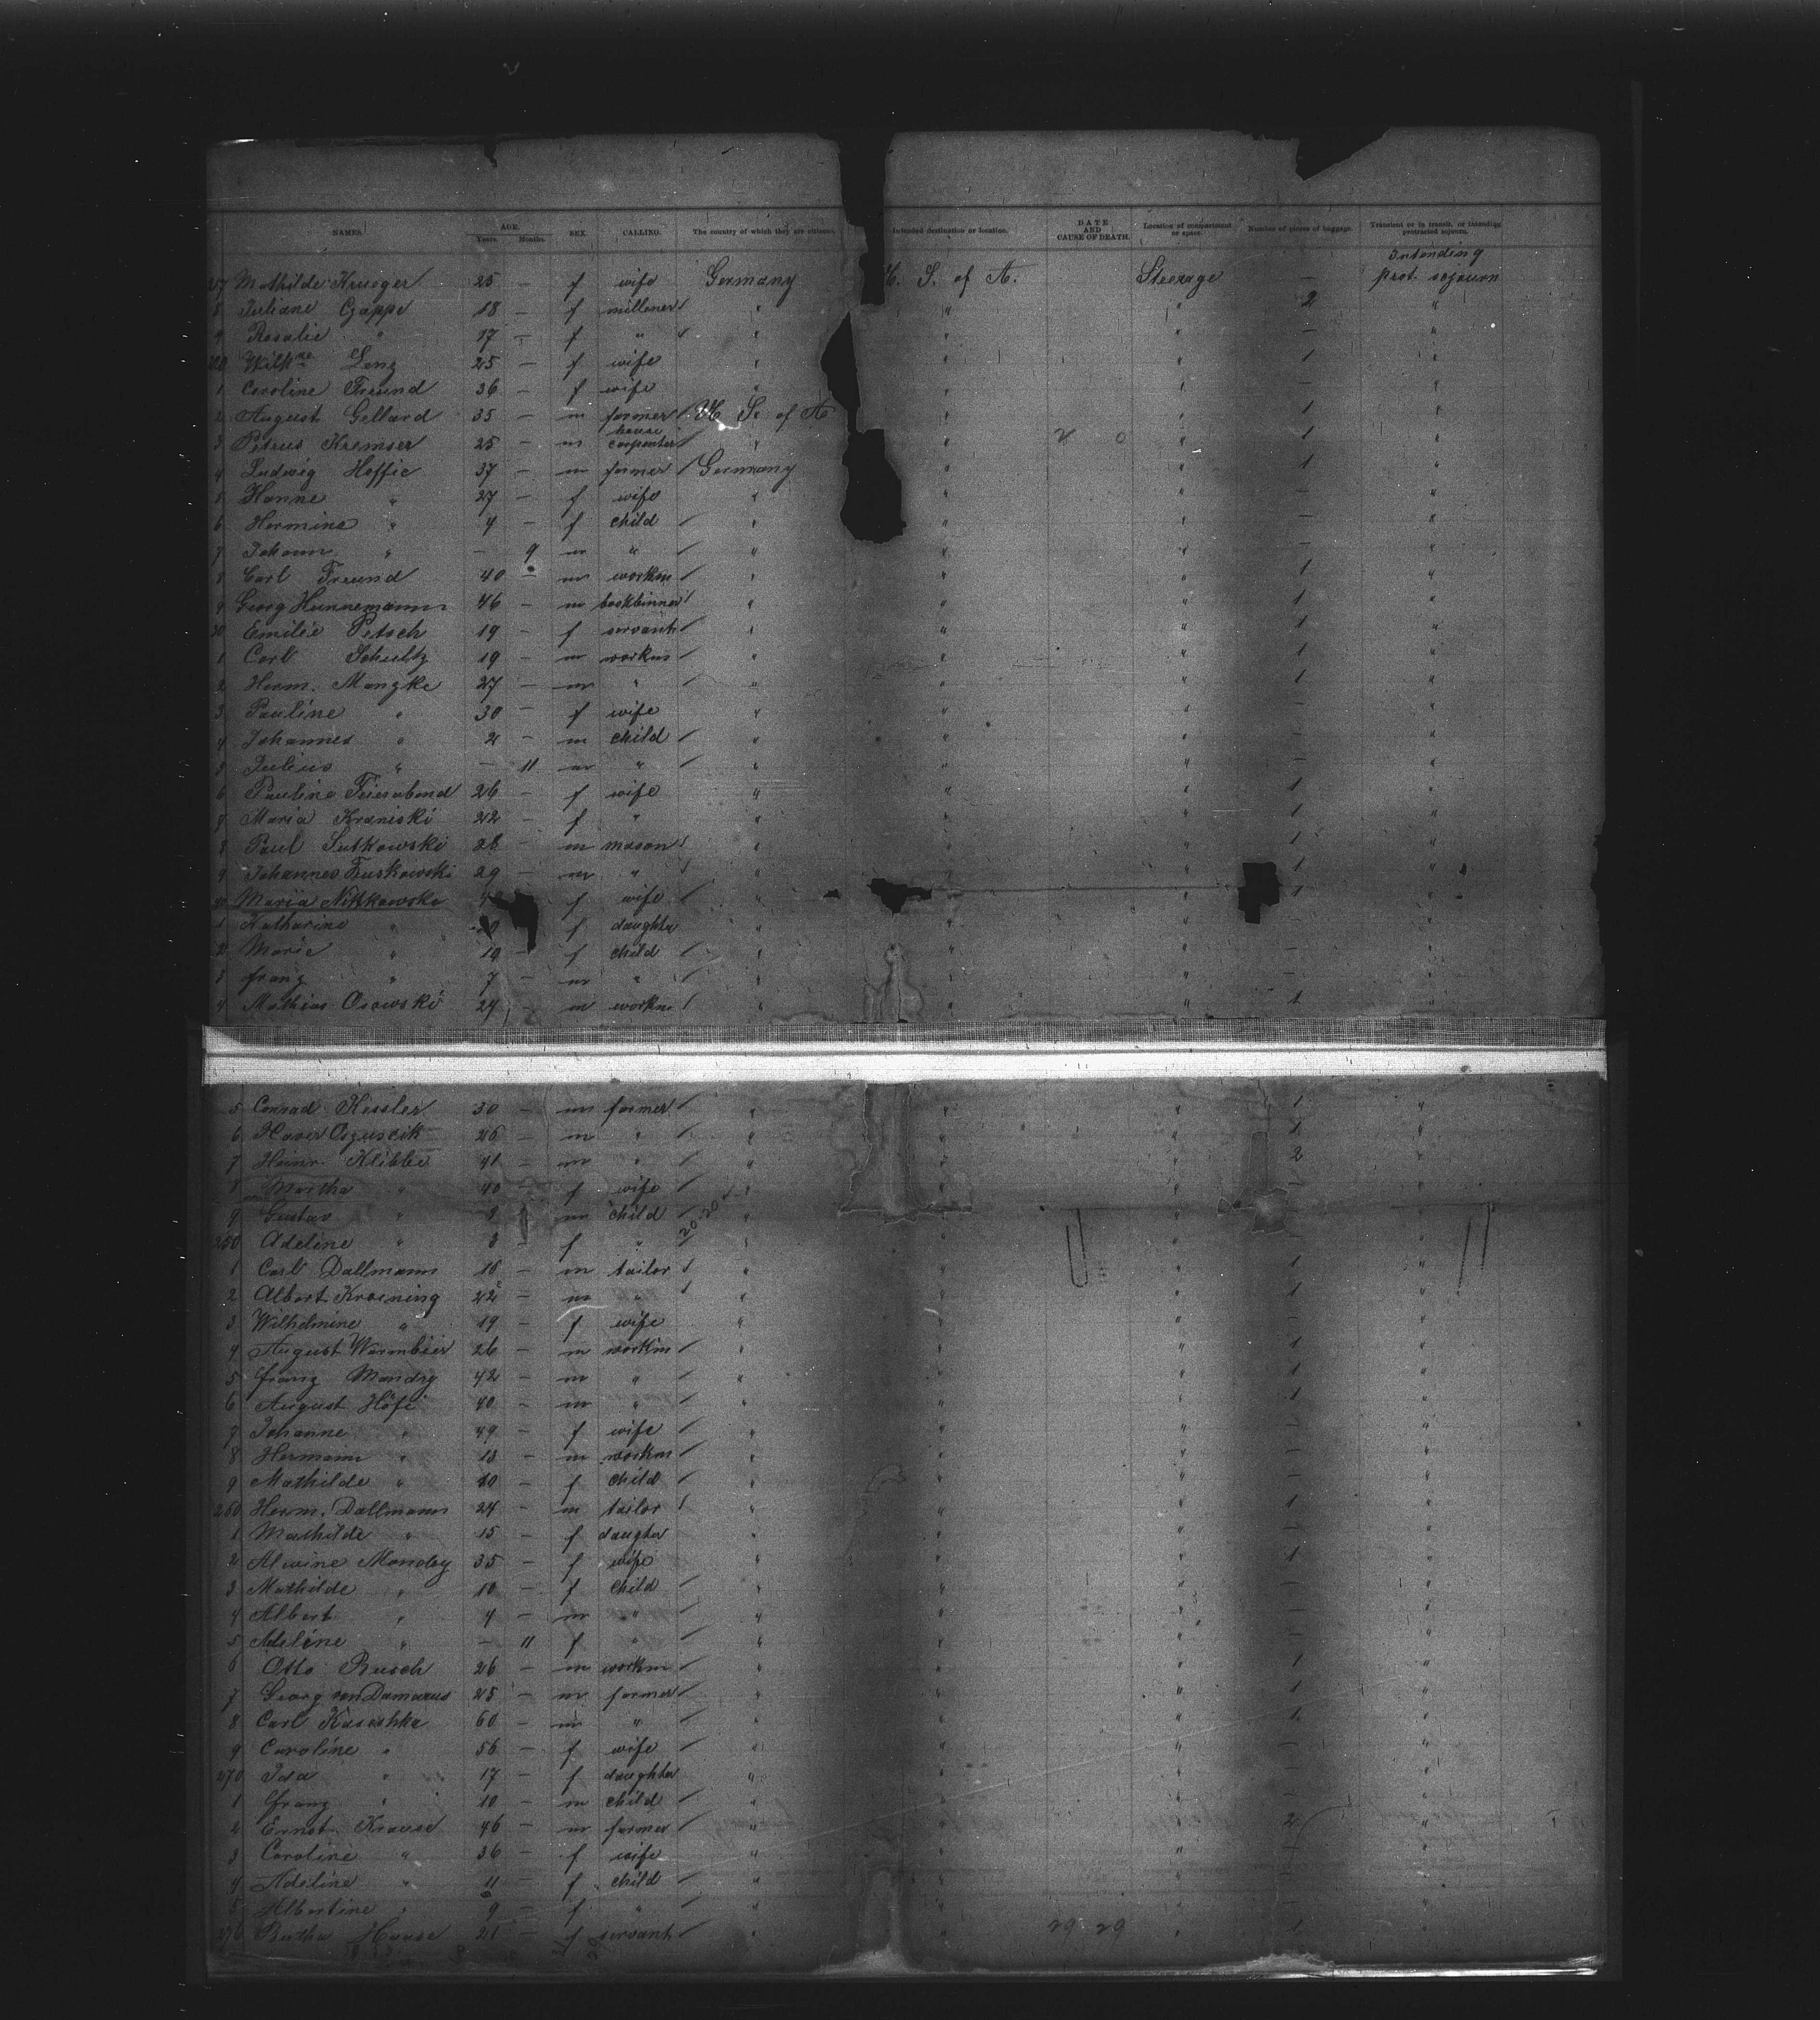 NAMES. AGE. Years. Months. SEX. CALLING. The country of which they are citizens. Intended destination or location. DATE AND CAUSE OF DEATH. Location of compartment or space. Number of pieces of baggage. Transient or in transit, or intending protracted sojourn.
Intending
Mathilde Krueger 25 — f wife Germany S. of A. Steerage — prot. sojourn
8 Juliane 18 — f milliner " " " 2 "
9 Rosalie " 17 — f " " " " — "
Lenz 25 — f wife " " " 1 "
1 Caroline Freund 36 f wife " " " — "
2 August Gellard 35 — m farmer U. S. of A. " " 1 "
house
3 Petrus Kremser 25 — m carpenter " " " 1 "
4 Ludwig Hoffie 37 — m farmer Germany " " 1 "
5 Hanne " 27 — f wife " " " — "
6 Hermine " 4 — f child " " " — "
7 Johann " — 9 m " " " " — "
8 Carl Freund 40 — m workm " " " 1 "
9 Georg Hunnemann 46 — m bookbinner " " " 1 "
30 Emilie Petsch 19 — f servant " " " 1 "
1 Carl Schultz 19 — m workm " " " 1 "
2 Herm. Manzke 27 — m " " " " 1 "
3 Pauline " 30 — f wife " " " — "
4 Johannes " 2 — m child " " " — "
5 Julius " — 11 m " " " " — "
6 Pauline Feierabend 26 — f wife " " " 1 "
7 Maria Kraniski 22 — f " " " " 1 "
8 Paul Sutkowski 28 m mason " " " 1 "
9 Johannes 29 — m " " " " 1 "
40 Maria f wife " " " 1 "
1 Katharine " f daughter " " " "
2 Marie " — f child " " " — "
3 Franz " 7 — m " " " " — "
4 Mathias Osowski — m workm " " " 1 "
5 Conrad Kessler 30 — m farmer " " " 1 "
6 26 — m " " " " 1 "
7 Heinr. Klibbe 41 — m " " " " 2 "
8 Martha " 40 — f wife " " " — "
9 Gustav " m child " " " — "
250 Adeline " 3 — f " " " " — "
1 Carl Dallmann — m tailor " " " 1 "
2 Albert Kroening 22 — m " " " " 1 "
3 Wilhelmine " 19 — f wife " " " — "
4 August Warmbier 26 — m workm " " " 1 "
5 Franz Mandey 42 — m " " " " 1 "
6 August Höft 40 — m " " " " 1 "
7 Johanne " 49 — f wife " " " — "
8 Hermann " 13 — m workm " " " — "
9 Mathilde " 10 — f child " " " — "
260 Herm. Dallmann 24 — m tailor " " " 1 "
1 Mathilde " 15 — f daughter " " " — "
2 Alwine Mandey 35 — f wife " " " 1 "
3 Mathilde " 10 — f child " " " — "
4 Albert " 4 — m " " " " — "
5 Adeline " — 11 f " " " " — "
6 Otto Rusch 26 — m workm " " " 1 "
7 Georg von Damarus 25 — m farmer " " " 1 "
8 Carl 60 — m " " " " 1 "
9 Caroline " 56 — f wife " " " — "
270 Ida " 17 — f daughter " " " — "
1 Franz " 10 — m child " " " — "
2 Ernst Krause 46 — m farmer " " " 2 "
3 Caroline " 36 — f wife " " " — "
4 Adeline " 11 — f child " " " — "
5 Albertine " 9 — f " " " " — "
276 Bertha Haase 21 — f servant " " 29 29 " 1 "